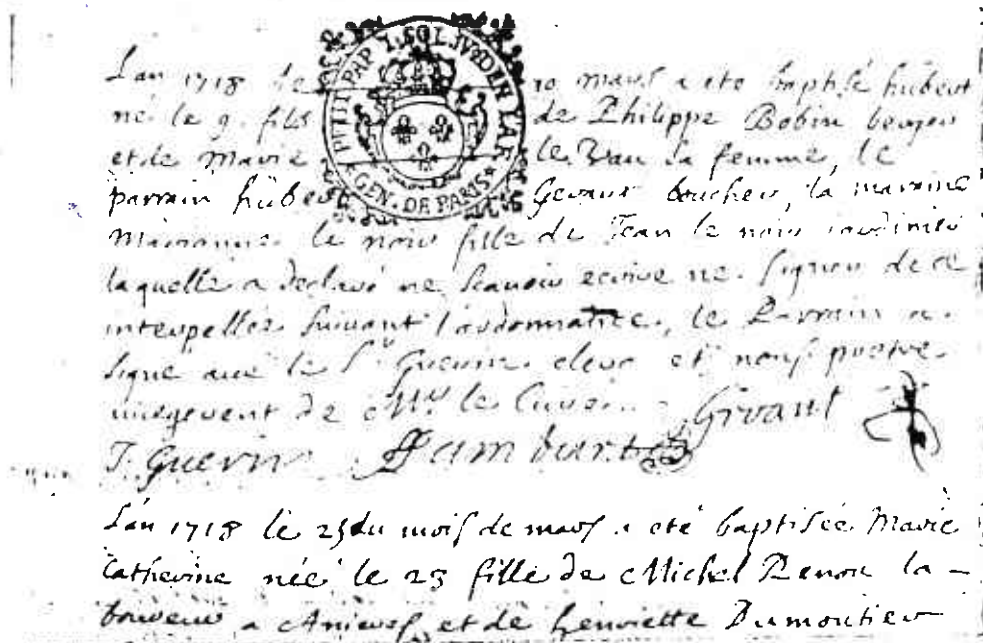 L'an 1718 le 10 mars a eté baptisé hubert
né le 9. fils de Philippe Bobin berger
et de Marie le Beau sa femme, le
parrain hubert Gevaut boucher, la maraine
Marianne le noir fille de Jean le noir jardinier
laquelle a declaré ne scavoir ecrire ne signer de ce
interpellée suivant l'ordonnance, le Parrain a
signé avec le Sr Guerin clerc et nous pretre
de Mr le Curé Givaut
J. Guerin Hambart
L'an 1718 le 25 du mois de mars a eté baptisée Marie
Catherine née le 25 fille de Michel Renou la-
boureur a Anieres et de henriette Dumoutier
PETIT PAP 1. SOL IV. DEN LA F.
GEN. DE PARIS